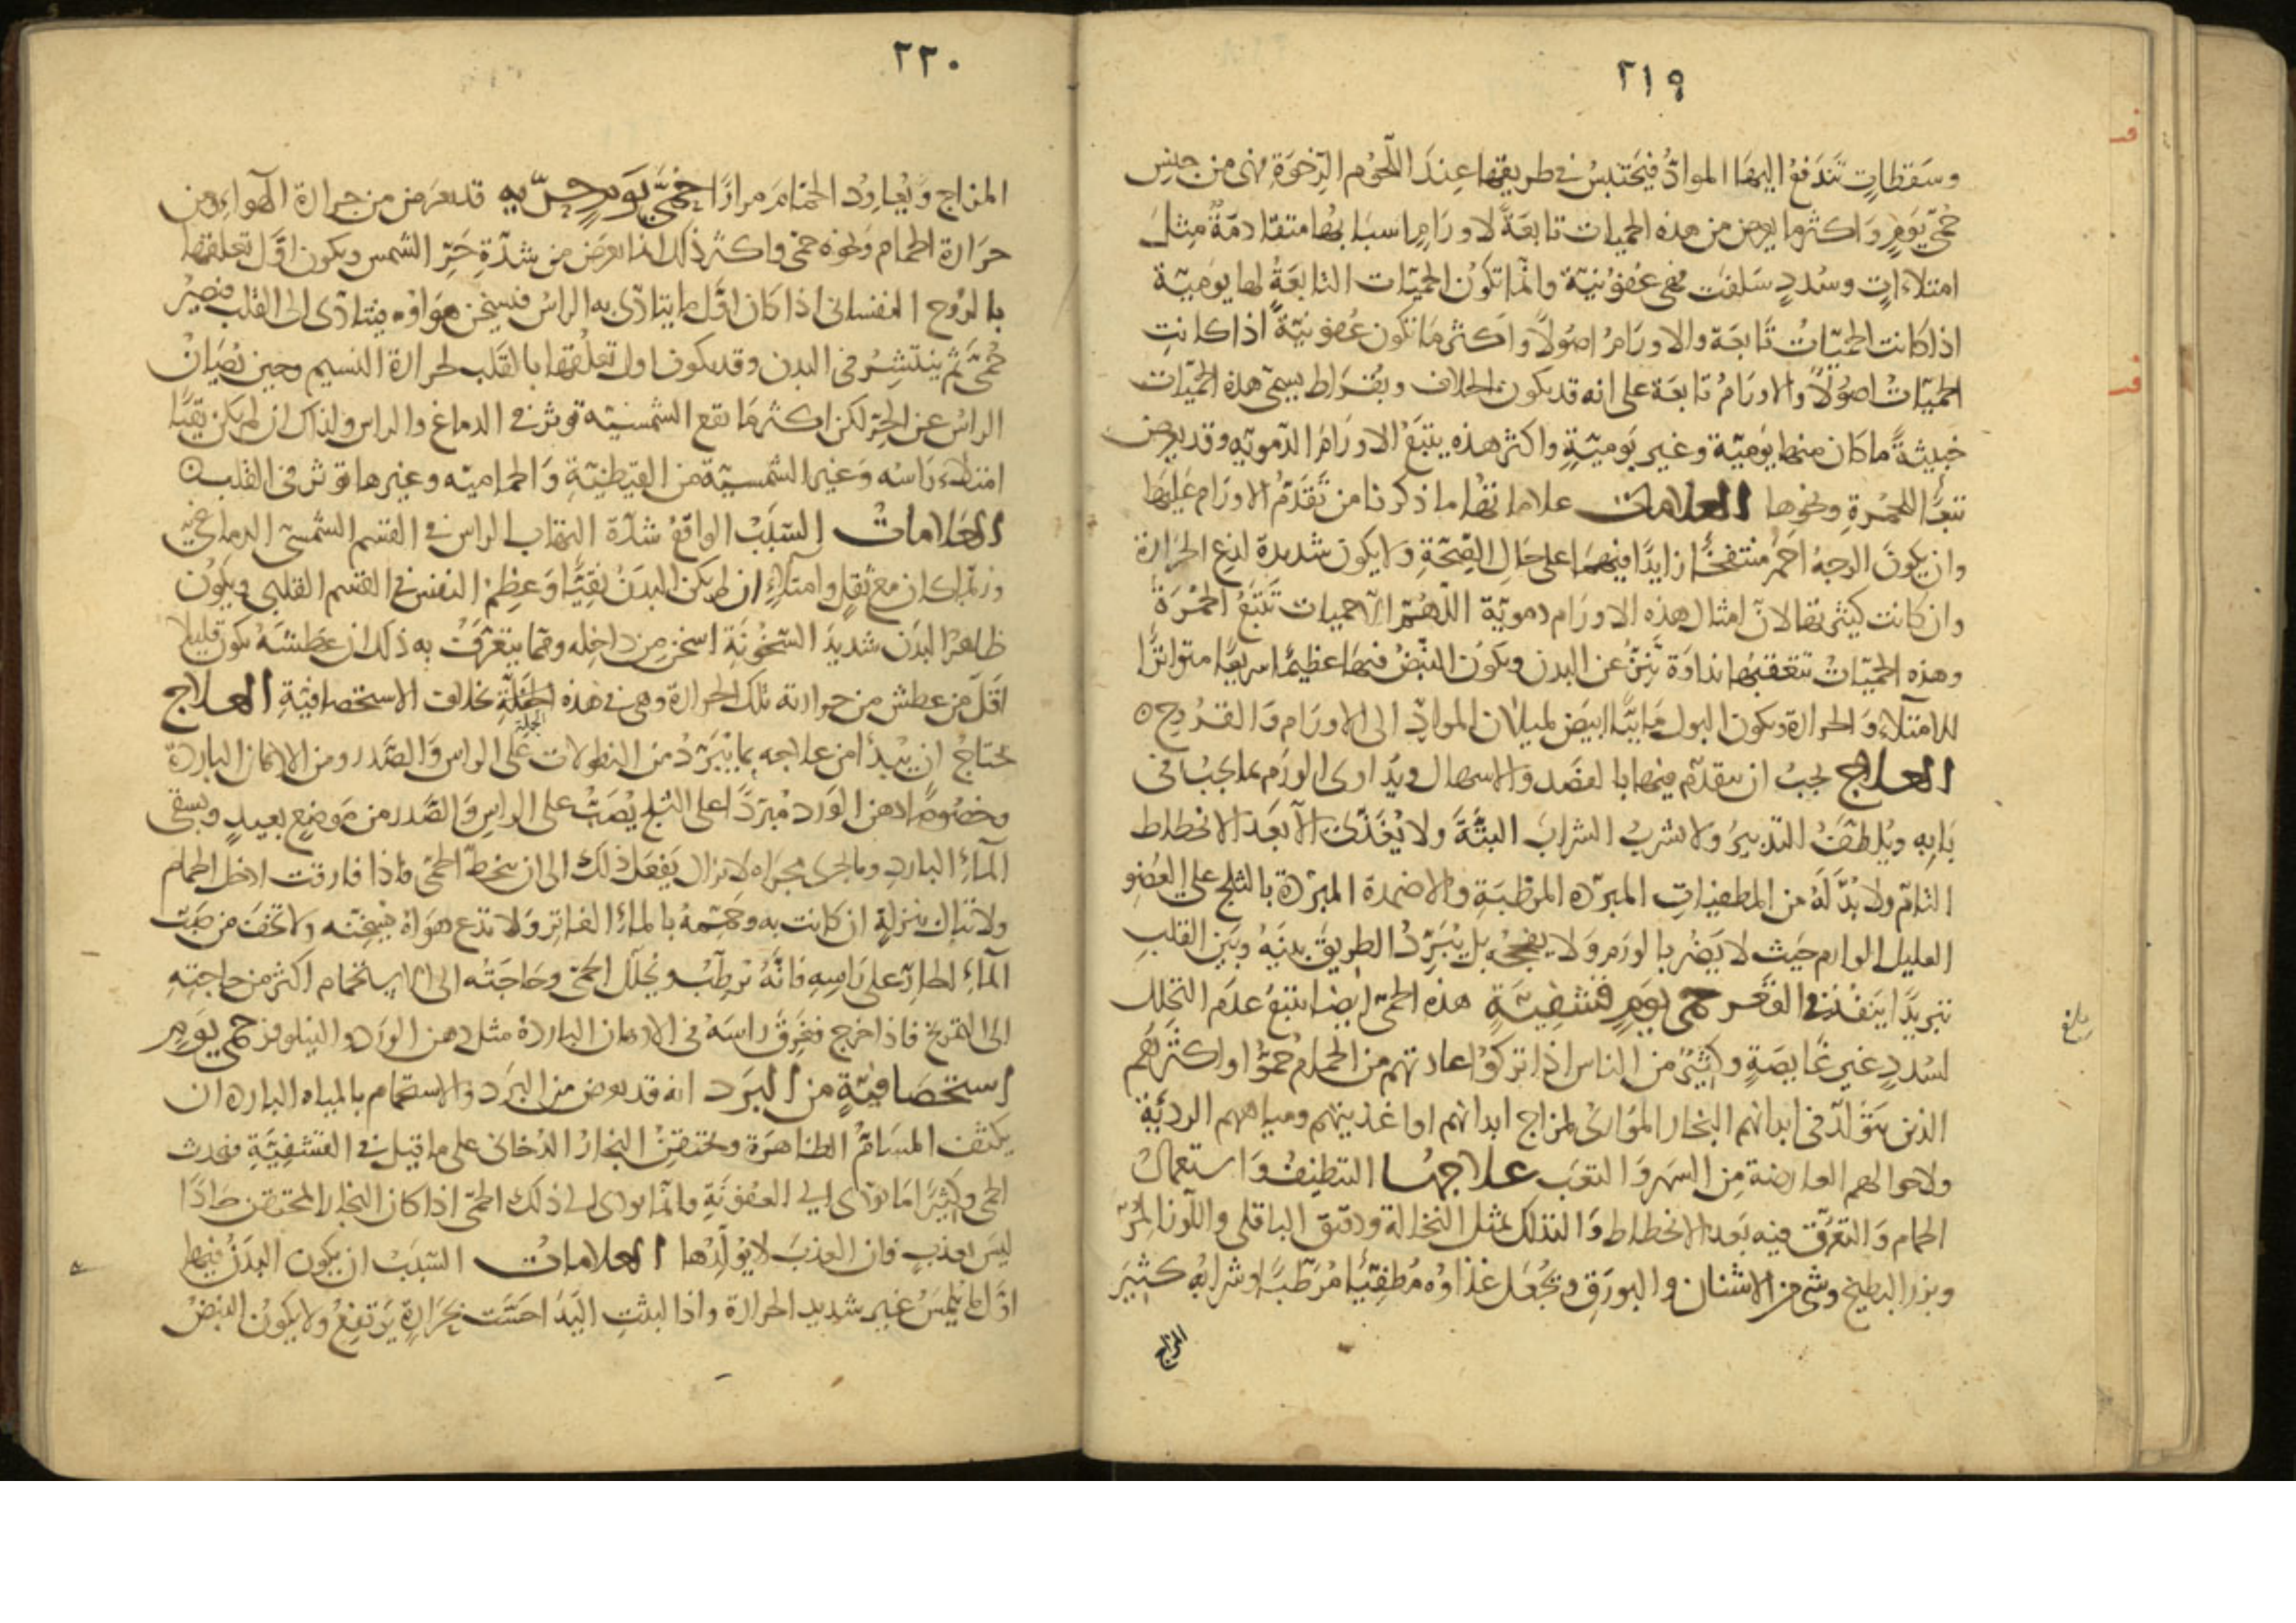 ٢١٩
وسقطات تندفع اليها المواد فيحتبس في طريقها عند اللحوم الرخوة فهي من جنس
حمى يوم واكثر ما يعرض من هذه الحميات تابعة لاورام اسبابها متقادمة مثل
امتلاءات وسدد سلفت فهي عفونية وانما تكون الحميات التابعة لها يومية
اذا كانت الحميات تابعة والاورام اصولا واكثر ما تكون عفونية اذا كانت
الحميات اصولا والاورام تابعة على انه قد يكون بالخلاف وبقراط يسمى هذه الحميات
خبيثة ما كان منها يومية وغير يومية واكثر هذه يتبع الاورام الدموية وقد يعرض
تبعا للحمرة ونحوها العلامات علاماتها ما ذكرنا من تقدم الاورام عليها
وان يكون الوجه احمر منتفخا زايدا فيهما على حال الصحة ولا يكون شديدة لذع الحرارة
وان كانت كثيرتها لان امثال هذه الاورام دموية اللهم الا حميات تتبع الحمرة
وهذه الحميات تتعقبها نداوة تنز عن البدن ويكون النبض فيها عظيما سريعا متواترا
للامتلاء والحرارة ويكون البول مايبا ابيض لميلان المواد الى الاورام والقروح ه
العلاج يجب ان يتقدم فيها بالفصد والاسهال ويداوى الورم بما يجب في
بابه ويلطف التدبير ولا يشرب الشراب البتة ولا يغذى الا بعد الانحطاط
التام ولا بد له من المطفيات المبردة المرطبة والاضمدة المبردة بالثلج على العضو
العليل الوارم حيث لا يضر بالورم ولا يفججه بل يبرد الطريق بينه وبين القلب
تبريدا ينفذ في القعر حمى يوم قشفية هذه الحمى ايضا تتبع عدم التحلل
لسدد غير غايصة وكثير من الناس اذا تركوا عادتهم من الحمام حموا واكثرهم
الذين يتولد في ابدانهم البخار المواري لمزاج ابدانهم او اغذيتهم ومياههم الردئية
ولاحوالهم العارضة من السهر والتعب علاجها التنظيف واستعمال
الحمام والتعرق فيه بعد الانحطاط والتدلك بمثل النخالة ودقيق الباقلى واللوز المر
وبزر البطيخ وشي من الاشنان والبورق ويجعل غذاوه مطفيا مرطبا وشرابه كثير
المزاج
بلغ
٢٢٠
المزاج ويعاود الحمام مرارا حمى يوم حرية قد يعرض من حرارة الهواء ومن
حرارة الحمام ونحوه حمى واكثر ذلك انما يعرض من شدة حر الشمس ويكون اول تعلقها
بالروح النفساني اذا كان اول ما يتاذى به الراس فيسخن هواوه ويتاذى الى القلب فيصير
حمى ثم ينتشر في البدن وقد يكون اول تعلقها بالقلب لحرارة النسيم وحين يصان
الراس عن الحر لكن اكثر ما تقع الشمسية توثر في الدماغ والراس ولذلك ان لم يكن نقيا
امتلاء راسه وغير الشمسية من القيظية والحمامية وغيرها توثر في القلب ه
العلامات السبب الواقع شدة التهاب الراس في القسم الشمسي الدماغي
وربما كان مع ثقل وامتلاء ان لم يكن البدن نقيا وعظم النفس في القسم القلبي ويكون
ظاهر البدن شديد السخونة اسخن من داخله ومما يتعرف به ذلك ان عطشه يكون قليلا
اقل من عطش من حرارته تلك الحرارة وهي في هذه الجملة بخلاف الاستحصافية العلاج
الجملة
يحتاج ان يبدا من علاجه بما يبرد من النطولات على الراس والصدر ومن الادهان الباردة
وخصوصا دهن الورد مبردا على الثلج يصب على الراس والصدر من موضع بعيد ويسقى
الماء البارد وما يجرى مجراه لا تزال يفعل ذلك الى ان ينحط الحمى فاذا فارقت ادخل الحمام
ولا تبال بنزلة ان كانت به وحممه بالماء الفاتر ولا تدع هواه يسخنه ولا تخف من صب
الماء الحار على راسه فانه يرطب ويحلل الحمى وحاجته الى الاستحمام اكثر من حاجته
الى التمريخ فاذا خرج فغرق راسه في الادهان الباردة مثل دهن الورد والنيلوفر حمى يوم
استحصافية من البرد انه قد يعرض من البرد والاستحمام بالمياه الباردة ان
يكثف المسام الظاهرة ويحتقن البخار الدخاني على ما قيل في القشفية فيحدث
الحمى وكثيرا ما تودى الى العفونة وانما يودى الى ذلك الحمى اذا كان البخار المحتقن حادا
ليس بعذب فان العذب لا يولدها العلامات السبب ان يكون البدن فيها
اول ما يلمس غير شديد الحرارة واذا لبثت اليد احست بحرارة ترتفع ولا يكون النبض